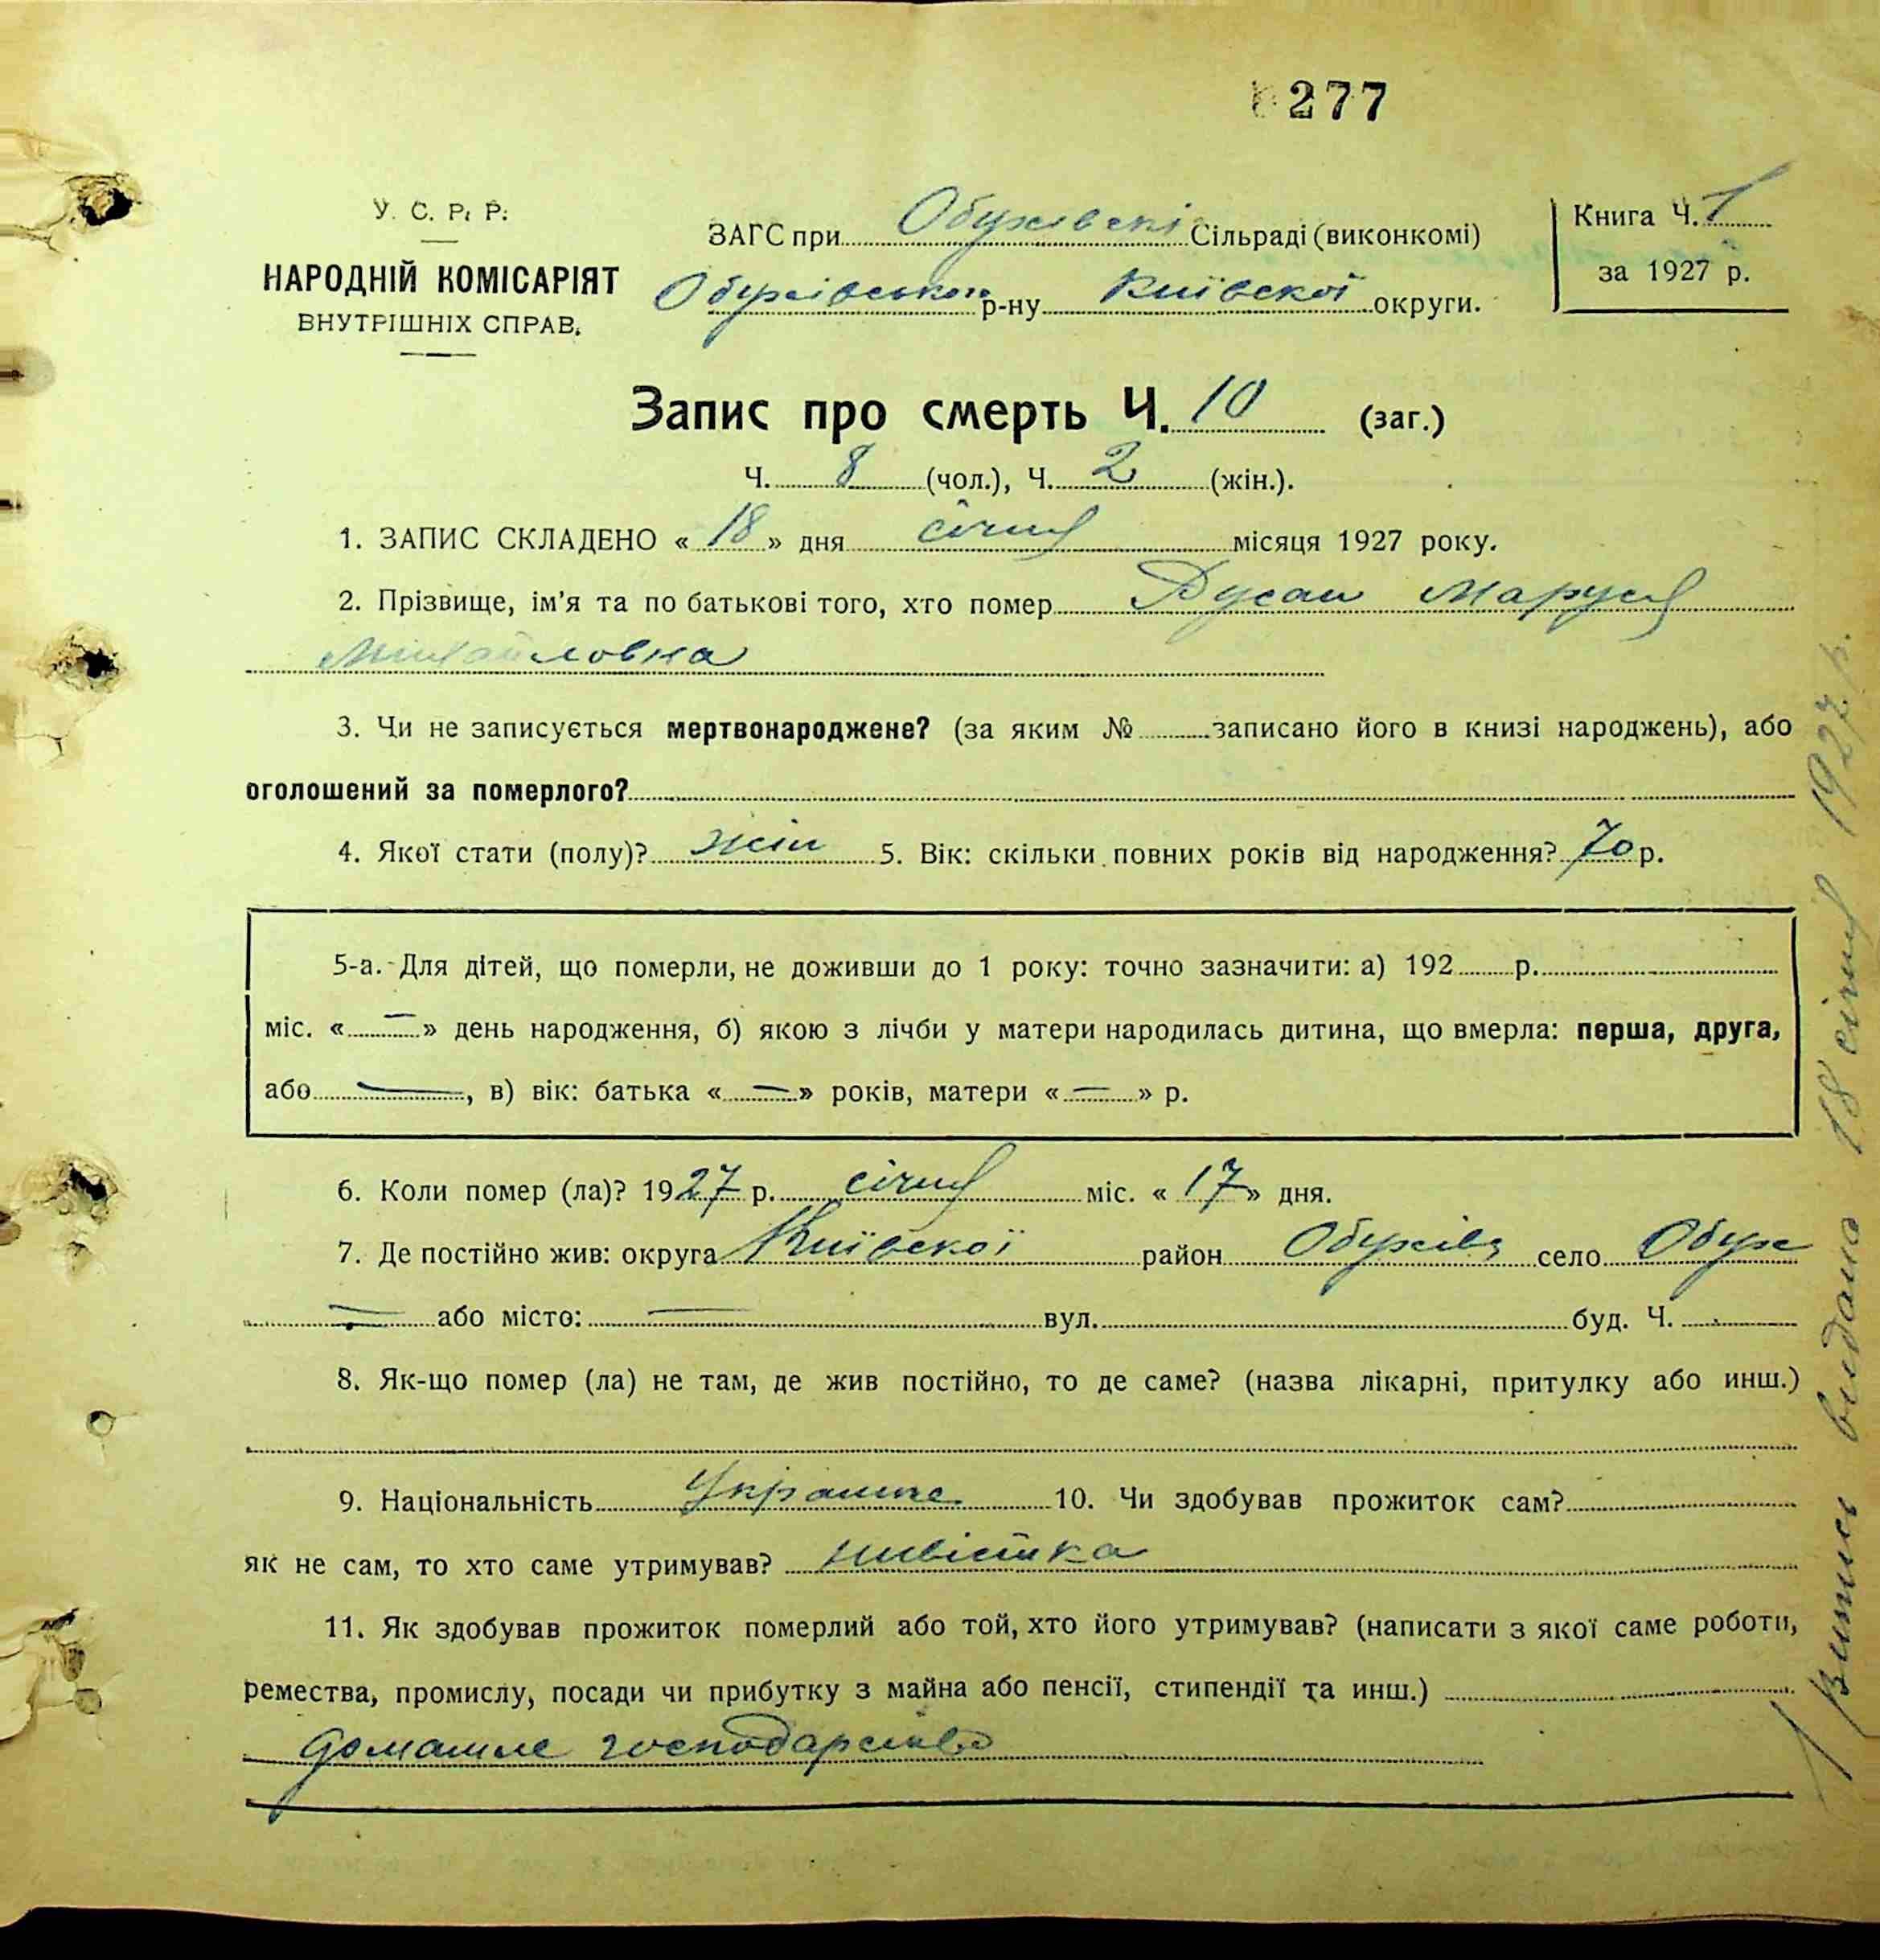 277
У. С. Р. Р.
НАРОДНІЙ КОМІСАРІЯТ
ВНУТРІШНІХ СПРАВ.
ЗАГС при Обухівскі Сільраді (виконкомі)
Обухівського р-ну Київскої округи.
Книга Ч. 1
за 1927 р.
Запис про смерть Ч. 10 (заг.)
Ч. 8 (чол.), Ч. 2 (жін.).
1. ЗАПИС СКЛАДЕНО « 18 » дня січня місяця 1927 року.
2. Прізвище, ім'я та по батькові того, хто помер Дусан Маруся
Михайловна
3. Чи не записується мертвонароджене? (за яким № записано його в книзі народжень), або
оголошений за померлого?
4. Якої стати (полу)? жін 5. Вік: скільки повних років від народження? 70 р.
5-а. Для дітей, що померли, не доживши до 1 року: точно зазначити: а) 192 р.
міс. « — » день народження, б) якою з лічби у матери народилась дитина, що вмерла: перша, друга,
або —, в) вік: батька « — » років, матери « — » р.
6. Коли помер (ла)? 1927 р. січня міс. « 17 » дня.
7. Де постійно жив: округа Київскої район Обухівс село Обух
— або місто: — вул. буд. Ч.
8. Як-що помер (ла) не там, де жив постійно, то де саме? (назва лікарні, притулку або инш.)
9. Національність 10. Чи здобував прожиток сам?
як не сам, то хто саме утримував? нивістка
11. Як здобував прожиток померлий або той, хто його утримував? (написати з якої саме роботи,
ремества, промислу, посади чи прибутку з майна або пенсії, стипендії та инш.)
домашнє господарство
Витись видано 18 січня 1927 р.